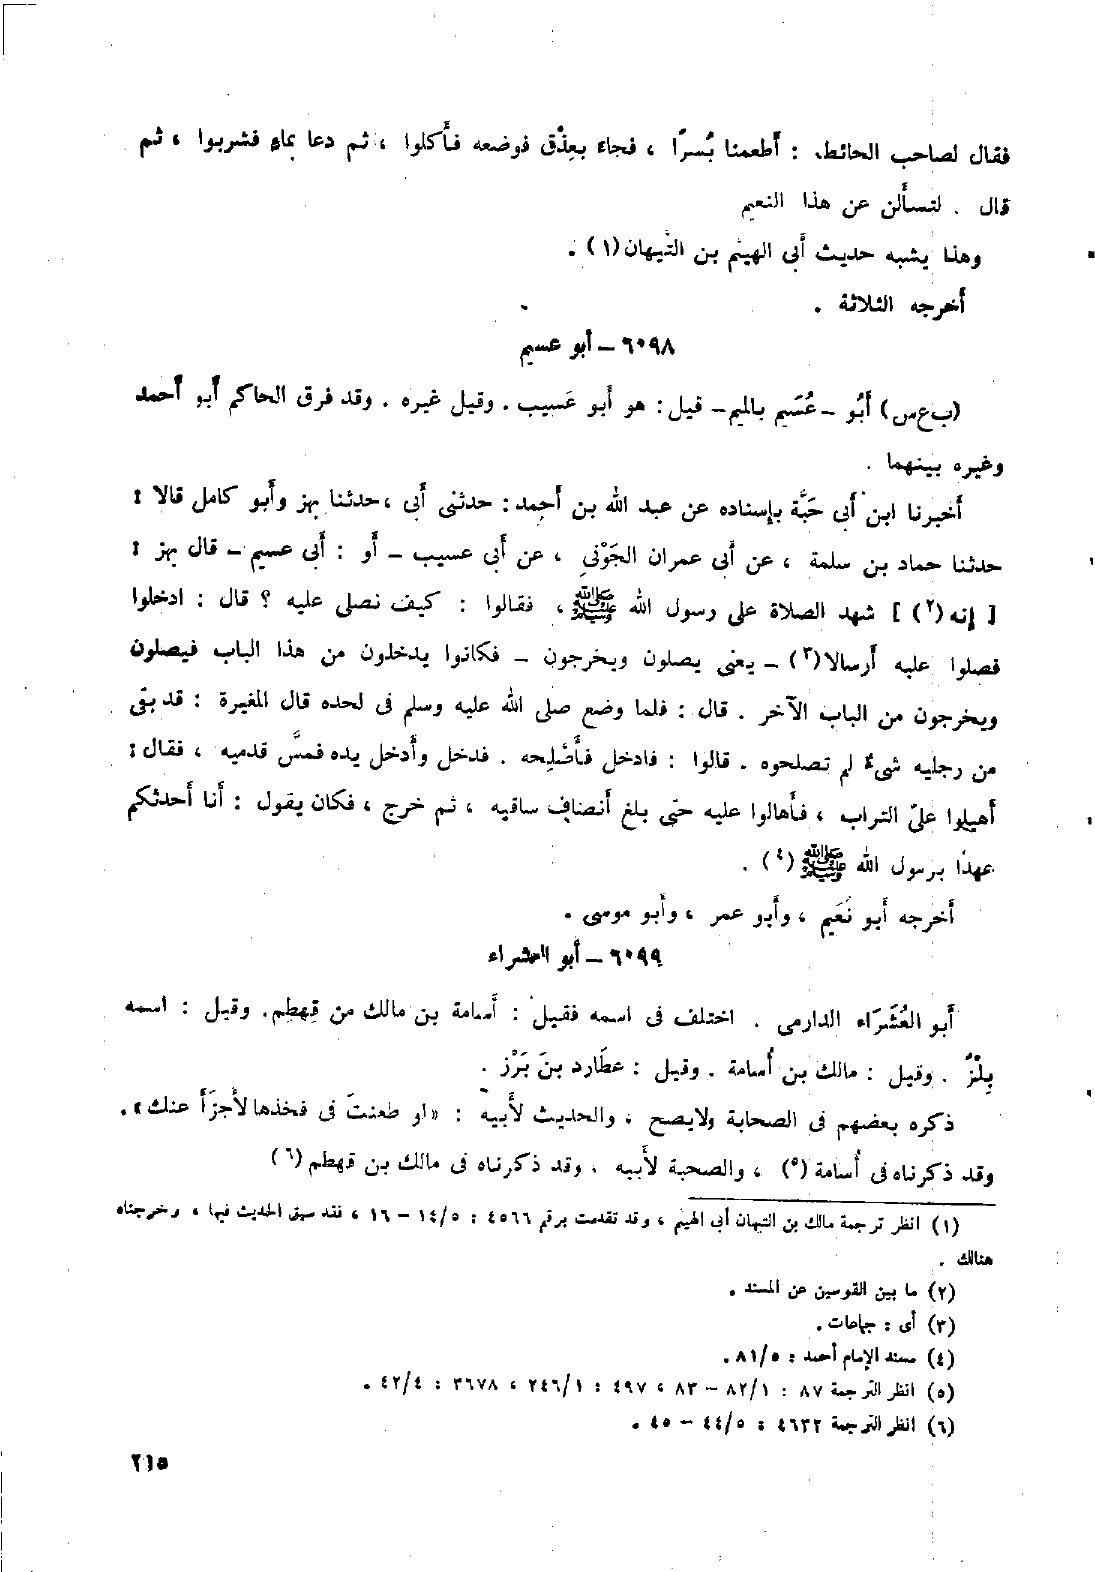 فقال لصاحب الحائط : أطعمنا بُسرًا ، فجاء بعِذْق فوضعه فأكلوا ، ثم دعا بماء فشربوا ، ثم
قال . لتسألن عن هذا النعيم
وهذا يشبه حديث أبى الهيثم بن التَّيهان(١) .
أخرجه الثلاثة .
٦٠٩٨ – أبو عسيم
(ب ع س) أبُو – عُسَيم بالميم – قيل : هو أبو عَسيب . وقيل غيره . وقد فرق الحاكم أبو أحمد
وغيره بينهما .
أخبرنا ابن أبى حَبَّة بإسناده عن عبد الله بن أحمد : حدثنى أبى ، حدثنا بهز وأبو كامل قالا :
حدثنا حماد بن سلمة ، عن أبى عمران الجَوْنىِ ، عن أبى عسيب – أو : أبى عسيم – قال بهز :
[ إنه(٢) ] شهد الصلاة على رسول الله ﷺ ، فقالوا : كيف نصلى عليه ؟ قال : ادخلوا
فصلوا عليه أرسالا(٣) – يعنى يصلون ويخرجون – فكانوا يدخلون من هذا الباب فيصلون
ويخرجون من الباب الآخر . قال : فلما وضع صلى الله عليه وسلم فى لحده قال المغيرة : قد بقى
من رجليه شىء لم تصلحوه . قالوا : فادخل فأَصْلِحه . فدخل وأدخل يده فمسَّ قدميه ، فقال :
أهيلوا علىّ التراب ، فأهالوا عليه حتى بلغ أنصاف ساقيه ، ثم خرج ، فكان يقول : أنا أحدثكم
عهدًا برسول الله ﷺ (٤) .
أخرجه أبو نَعَيم ، وأبو عمر ، وأبو موسى .
٦٠٩٩ – أبو العشراء
أبو العُشَرَاء الدارمى . اختلف فى اسمه فقيل : أسامة بن مالك من قِهطِم . وقيل : اسمه
بِلْزٌ . وقيل : مالك بن أُسامة . وقيل : عطَارد بنَ بَرْز .
ذكره بعضهم فى الصحابة ولايصح ، والحديث لأبيه : «او طعنتَ فى فخذها لأجزَأَ عنك» .
وقد ذكرناه فى أُسامة(٥) ، والصحبة لأبيه . وقد ذكرناه فى مالك بن قهطم(٦)
(١) انظر ترجمة مالك بن التيهان أبى الهيثم ، وقد تقدمت برقم ٤٥٦٦ : ١٤/٥ – ١٦ ، فقد سبق الحديث فيها ، وخرجناه
هنالك .
(٢) ما بين القوسين عن المسند .
(٣) أى : جماعات .
(٤) مسند الإمام أحمد : ٨١/٥ .
(٥) انظر الترجمة ٨٧ : ٨٢/١ – ٨٣ ، ٤٩٧ : ٢٤٦/١ ، ٣٦٧٨ : ٤٢/٤ .
(٦) انظر الترجمة ٤٦٣٢ : ٤٤/٥ – ٤٥ .
٢١٥